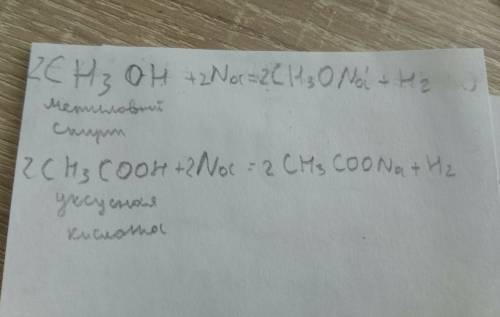 2CH3OH + 2Na = 2CH3ONa + H2
метиловый
спирт
2CH3COOH + 2Na = 2CH3COONa + H2
уксусная
кислота